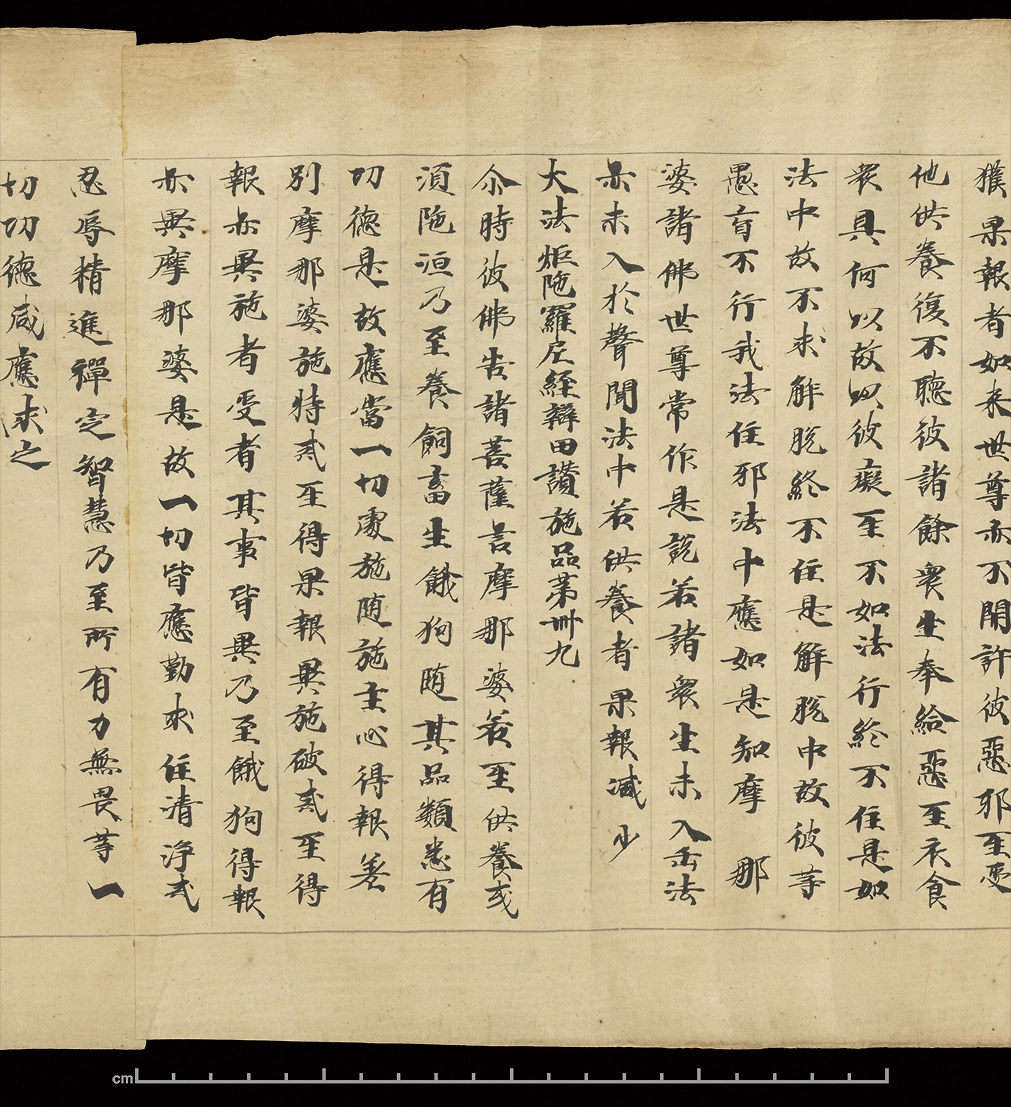 獲果報者如来世尊亦不開許彼惡邪𤯔受
他供養復不聽彼諸餘衆生奉給惡𤯔衣食
衆具何以故以彼癡𤯔不如法行終不住是如
法中故不求解脫終不住是解脫中故彼等
愚盲不行我法住邪法中應如是知摩那
婆諸佛世尊常作是說若諸衆生未入吾法
亦未入於聲聞法中若供養者果報減少
大法炬陁羅尼經辯田讚施品第卌九
尒時彼佛告諸菩薩言摩那婆若𤯔供養或
須陁洹乃至養飼畜生餓狗随其品類悉有
功德是故應當一切處施随施主心得報差
別摩那婆施持戒𤯔得果報異施破戒𤯔得
報亦異施者受者其事皆異乃至餓狗得報
亦異摩那婆是故一切皆應勤求住清淨戒
忍辱精進禪定智慧乃至所有力無畏等一
切功德咸應求之